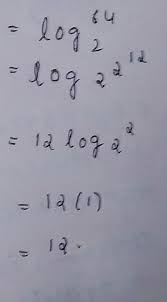 = log₂⁶⁴
= log 2 2¹²
= 12 log 2²
= 12 (1)
= 12.